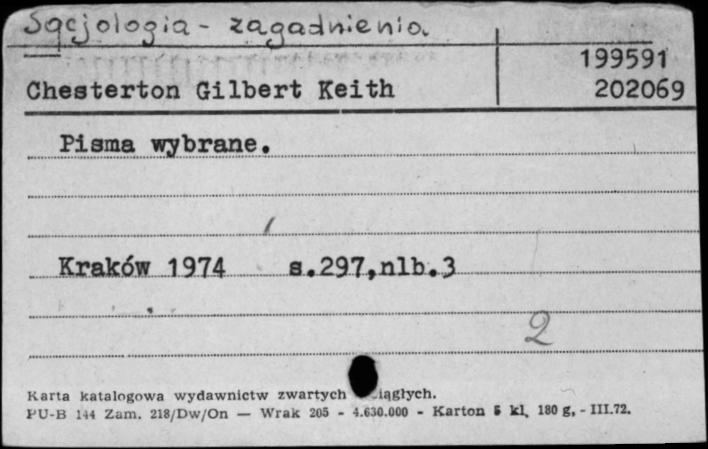 Socjologia - zagadnienia
199591
Chesterton Gilbert Keith 202069
Pisma wybrane.
Kraków 1974 s.297,nlb.3
2
Karta katalogowa wydawnictw zwartych iągłych.
PU-B 144 Zam. 218/Dw/On — Wrak 205 - 4.630.000 - Karton 5 kl, 180 g, - III.72.